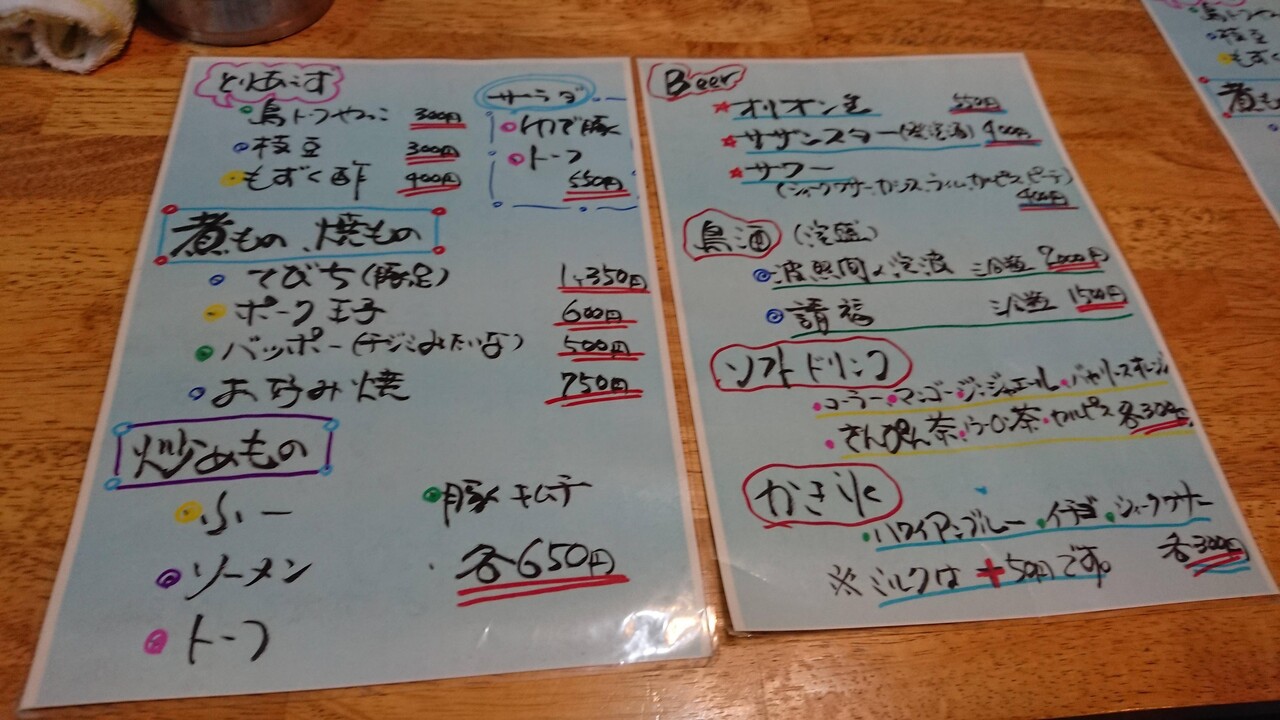 とりあこす
島トーフやっこ 300円
枝豆 300円
もずく酢 400円
サラダ
ゆで豚
トーフ
550円
煮もの、焼もの
てびち(豚足) 1,350円
ポーク玉子 600円
バッポー(チヂミみたいな) 500円
お好み焼 750円
炒めもの
ふー
豚キムチ
ソーメン
各650円
トーフ
Beer
オリオン生 550円
サザンスター(発泡酒) 400円
サワー
(シークワサー、カシス、ライム、カルピス、ピーチ)
400円
島酒 (泡盛)
波照間、泡波 三合瓶 2000円
請福 三合瓶 1500円
ソフトドリンク
コーラ・マンゴー・ジンジャエール・バヤリースオレンジ
さんぴん茶・ウーロン茶・カルピス 各300円
かき氷
ハワイアンブルー・イチゴ・シークワサー
各300円
※ミルクは+50円です。
島トーフやっこ
枝豆
もずく
煮も